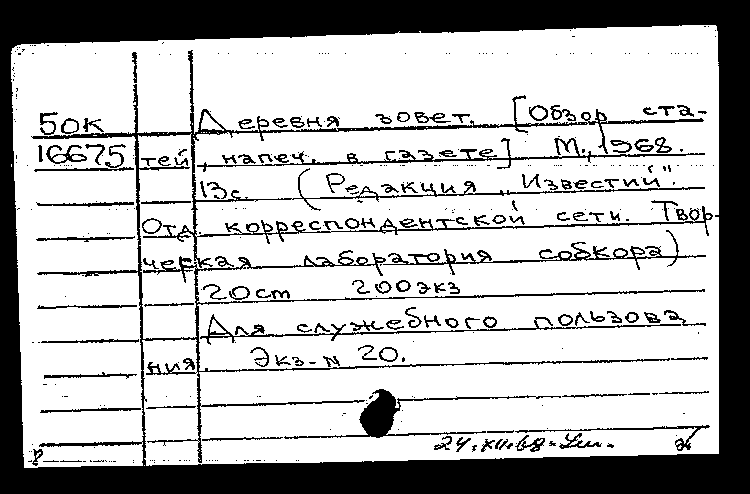 50к Деревня зовет. [Обзор ста-
16675 тей, напеч. в газете] М., 1968.
13с (Редакция „Известий".
Отд корреспондентской сети. Твор-
ческая лаборатория собкора)
20ст 200экз
Для служебного пользова
ния. Экз-N 20.
24.XII.68
8